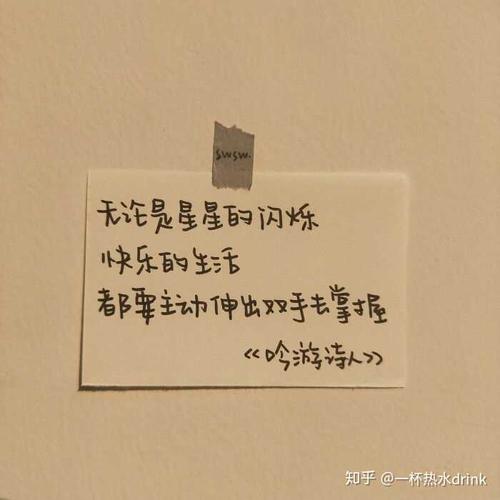 swsw.
无论是星星的闪烁
快乐的生活
都要主动伸出双手去掌握
《吟游诗人》
知乎 @一杯热水drink